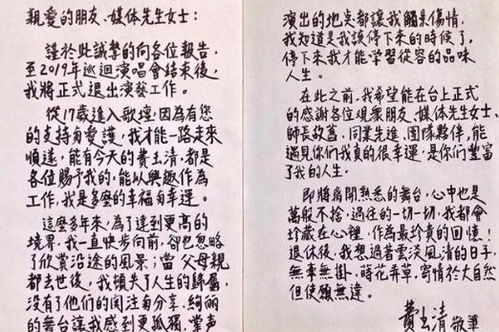 親愛的朋友、媒体先生女士:
謹於此誠摯的向各位報告,
至2019年巡迴演唱會結束後,
我將正式退出演藝工作。
從17歲進入歌壇,因為有您
的支持與愛護,我才能一路走來
順遂,能有今天的費玉清,都是
各位賜予我的,能以興趣作為
工作,我是多麼的幸福與幸運。
這麼多年來,為了達到更高的
境界,我一直快步向前,卻也忽略
了欣賞沿途的風景;當父母親
都去世後,我頓失了人生的歸屬,
沒有了他們的関注與分享,絢麗
的舞台讓我感到更孤獨,掌声
演出的地点都讓我觸景傷情,
我知道是我該停下來的時候了,
停下來我才能學習從容的品味
人生。
在此之前,我希望能在台上正式
的感謝各位觀眾朋友、媒体先生女士、
師長故舊,同業先進,團隊夥伴,能
遇見你們我真的很幸運,是你們豐富
了我的人生。
即將離開熟悉的舞台,心中也是
萬般不捨,過往的一切一切,我都會
珍藏在心裡,作為最珍貴的回憶!
退休後,我想過著雲淡風清的日子,
無牽無掛,蒔花弄草,寄情於大自然
但使願無違。
費玉清 敬筆